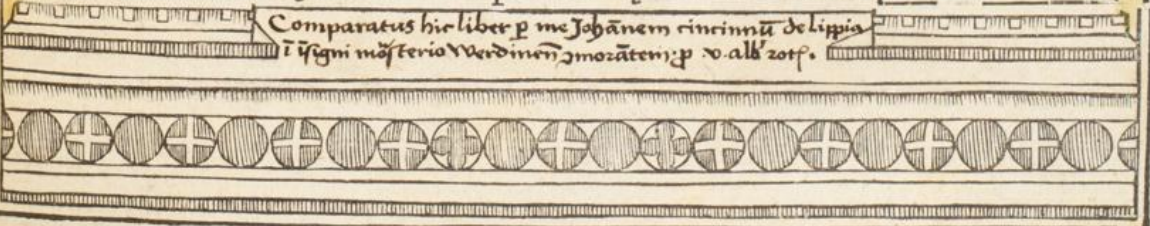 Comparatus hic liber p̄ me Johānem cincinnū de lippia
ī īsigni mōsterio werdineñ ꝯmorātem: p̄ v. alb' rotꝭ.